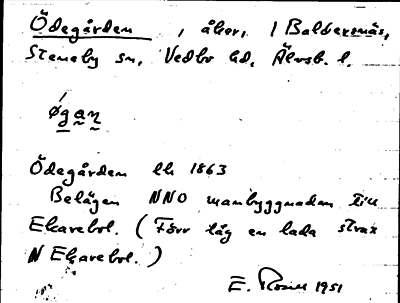 Ödegården, åker, / Baldersnäs,
Steneby sn, Vedbo hd, Älvsb. l.
øgan
Ödegården lh 1863
Belägen NNO manbyggnaden till
Ekarebol. (Förr låg en lada strax
N Ekarebol.)
E. Rosell 1951